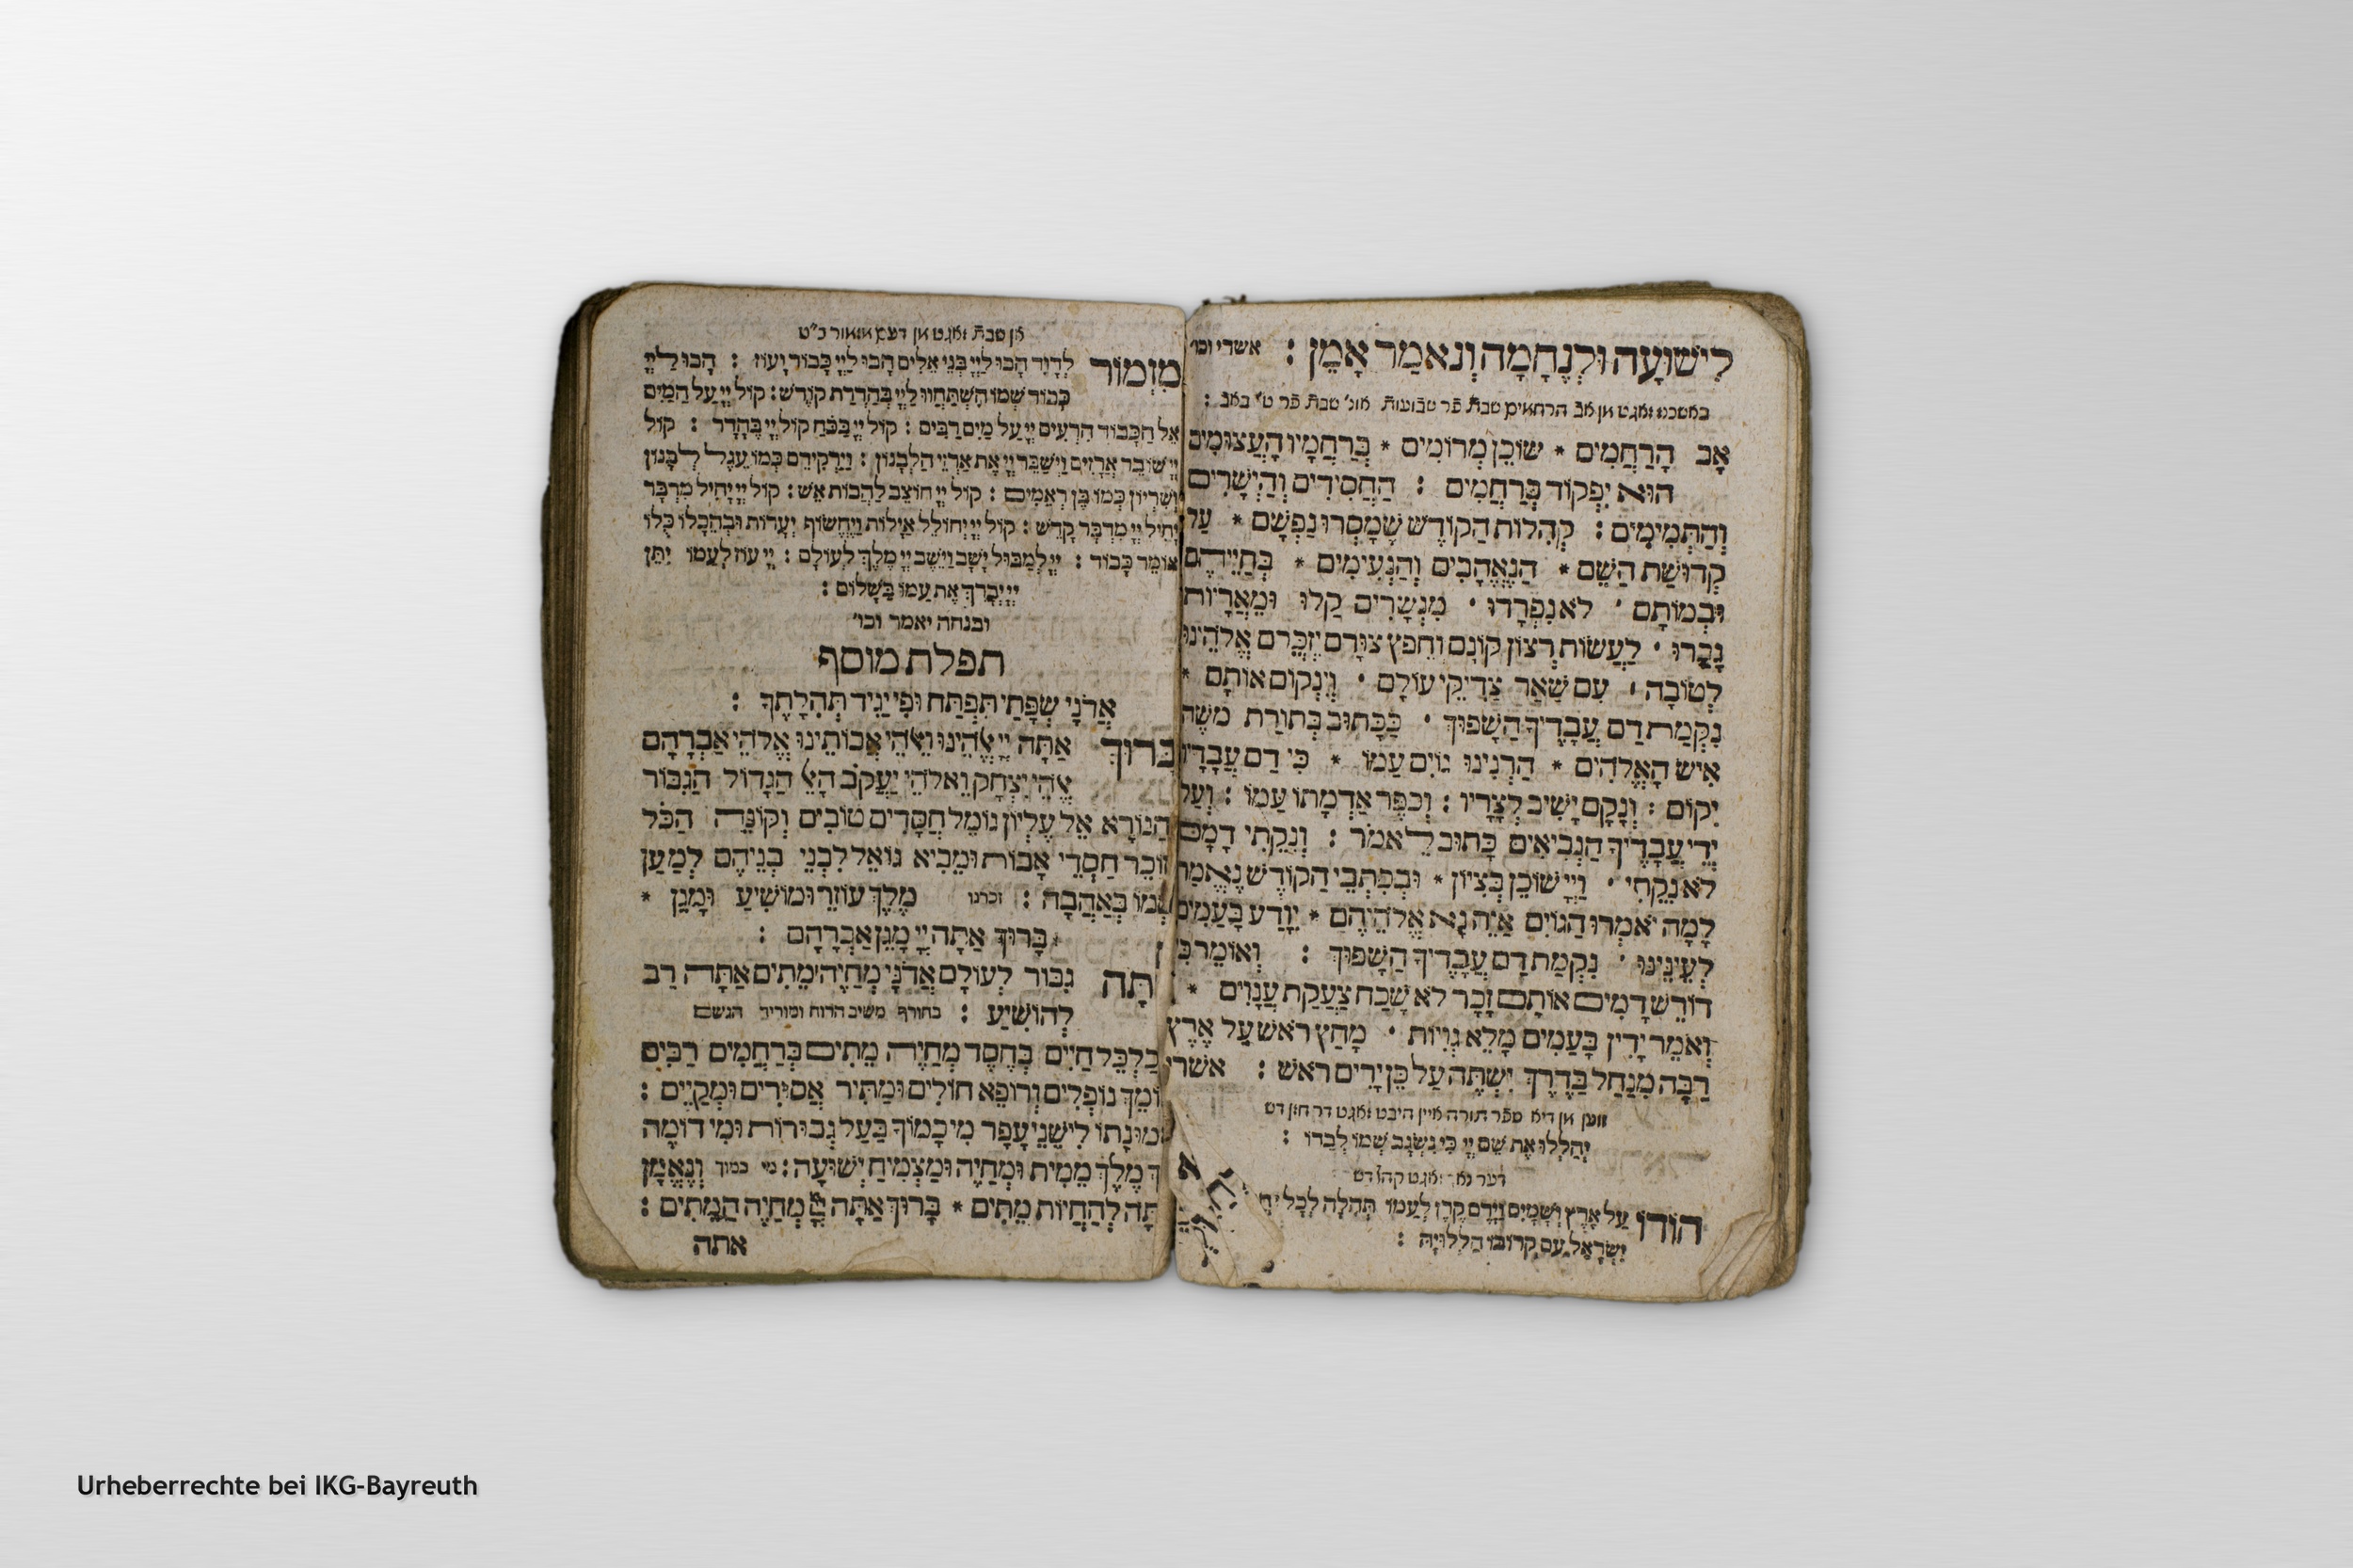 לִישׁוּעָה וּלְנֶחָמָה וְנֹאמַר אָמֵן : אשרי וכו'
באשכנז זאגט מן אב הרחמים שבת פר שבועות אונ' שבת פר ט' באב :
אָב הָרַחֲמִים * שׁוֹכֵן מְרוֹמִים * בְּרַחֲמָיו הָעֲצוּמִים
הוּא יִפְקוֹד בְּרַחֲמִים : הַחֲסִידִים וְהַיְשָׁרִים
וְהַתְּמִימִים : קְהִלּוֹת הַקּוֹדֶשׁ שֶׁמָּסְרוּ נַפְשָׁם * עַל
קְדוּשַׁת הַשֵּׁם * הַנֶּאֱהָבִים וְהַנְּעִימִים * בְּחַיֵּיהֶם
וּבְמוֹתָם ' לֹא נִפְרָדוּ ' מִנְּשָׁרִים קַלּוּ וּמֵאֲרָיוֹת
גָּבֵרוּ ' לַעֲשׂוֹת רְצוֹן קוֹנָם וְחֵפֶץ צוּרָם יִזְכְּרֵם אֱלֹהֵינוּ
לְטוֹבָה ' עִם שְׁאַר צַדִּיקֵי עוֹלָם ' וְיִנְקוֹם אוֹתָם *
נִקְמַת דַּם עֲבָדֶיךָ הַשָּׁפוּךְ ' כַּכָּתוּב בְּתוֹרַת משֶׁה
אִישׁ הָאֱלֹהִים * הַרְנִינוּ גוֹיִם עַמּוֹ * כִּי דַם עֲבָדָיו
יִקּוֹם : וְנָקָם יָשִׁיב לְצָרָיו : וְכִפֶּר אַדְמָתוֹ עַמּוֹ : וְעַל
יְדֵי עֲבָדֶיךָ הַנְּבִיאִים כָּתוּב לֵאמֹר : וְנִקֵּתִי דָמָם
לֹא נִקֵּתִי ' וַיְיָ שׁוֹכֵן בְּצִיּוֹן * וּבְכִתְבֵי הַקּוֹדֶשׁ נֶאֱמַר
לָמָּה יֹאמְרוּ הַגּוֹיִם אַיֵּה נָא אֱלֹהֵיהֶם * יִוָּדַע בָּעַמִּים
לְעֵינֵינוּ ' נִקְמַת דַּם עֲבָדֶיךָ הַשָּׁפוּךְ : וְאוֹמֵר כִּי
דוֹרֵשׁ דָּמִים אוֹתָם זָכָר לֹא שָׁכַח צַעֲקַת עֲנָוִים *
וְאֹמֵר יָדִין בָּעַמִּים מָלֵא גְוִיּוֹת ' מָחַץ רֹאשׁ עַל אֶרֶץ
רַבָּה מִנַּחַל בַּדֶּרֶךְ יִשְׁתֶּה עַל כֵּן יָרִים רֹאשׁ : אשרי
ווען מן דיא ספר תורה איין היבט זאגט דר חזן דש
יְהַלְלוּ אֶת שֵׁם יְיָ כִּי נִשְׂגָּב שְׁמוֹ לְבַדּוֹ :
זאגט קהל דש
הוֹדוֹ עַל אֶרֶץ וְשָׁמָיִם וַיָּרֶם קֶרֶן לְעַמּוֹ תְּהִלָּה לְכָל
יִשְׂרָאֵל עַם קְרוֹבוֹ הַלְלוּיָהּ :
אן שבת זאגט מן דעם מזמור כ"ט
מִזְמוֹר לְדָוִד הָבוּ לַיְיָ בְּנֵי אֵלִים הָבוּ לַיְיָ כָּבוֹד וָעוֹז : הָבוּ לַיְיָ
כְּבוֹד שְׁמוֹ הִשְׁתַּחֲווּ לַיְיָ בְּהַדְרַת קוֹדֶשׁ : קוֹל יְיָ עַל הַמָּיִם
אֵל הַכָּבוֹד הִרְעִים יְיָ עַל מַיִם רַבִּים : קוֹל יְיָ בַּכֹּחַ קוֹל יְיָ בֶּהָדָר : קוֹל
יְיָ שׁוֹבֵר אֲרָזִים וַיְשַׁבֵּר יְיָ אֶת אַרְזֵי הַלְּבָנוֹן : וַיַּרְקִידֵם כְּמוֹ עֵגֶל לְבָנוֹן
וְשִׂרְיוֹן כְּמוֹ בֶן רְאֵמִים : קוֹל יְיָ חוֹצֵב לַהֲבוֹת אֵשׁ : קוֹל יְיָ יָחִיל מִדְבָּר
יָחִיל יְיָ מִדְבַּר קָדֵשׁ : קוֹל יְיָ יְחוֹלֵל אַיָּלוֹת וַיֶּחֱשׂוֹף יְעָרוֹת וּבְהֵכָלוֹ כֻּלּוֹ
אוֹמֵר כָּבוֹד : יְיָ לַמַּבּוּל יָשָׁב וַיֵּשֶׁב יְיָ מֶלֶךְ לְעוֹלָם : יְיָ עוֹז לְעַמּוֹ יִתֵּן
יְיָ יְבָרֵךְ אֶת עַמּוֹ בַשָּׁלוֹם :
ובנחה יאמר וכו'
תפלת מוסף
אֲדֹנָי שְׂפָתַי תִּפְתַּח וּפִי יַגִּיד תְּהִלָּתֶךָ :
בָּרוּךְ אַתָּה יְיָ אֱלֹהֵינוּ וֵאלֹהֵי אֲבוֹתֵינוּ אֱלֹהֵי אַבְרָהָם
אֱלֹהֵי יִצְחָק וֵאלֹהֵי יַעֲקֹב הָאֵל הַגָּדוֹל הַגִּבּוֹר
הַנּוֹרָא אֵל עֶלְיוֹן גּוֹמֵל חֲסָדִים טוֹבִים וְקוֹנֵה הַכֹּל
זוֹכֵר חַסְדֵי אָבוֹת וּמֵבִיא גוֹאֵל לִבְנֵי בְנֵיהֶם לְמַעַן
שְׁמוֹ בְּאַהֲבָה : זכרנו מֶלֶךְ עוֹזֵר וּמוֹשִׁיעַ וּמָגֵן *
בָּרוּךְ אַתָּה יְיָ מָגֵן אַבְרָהָם :
תָּה גִבּוֹר לְעוֹלָם אֲדֹנָי מְחַיֶּה מֵתִים אַתָּה רַב
לְהוֹשִׁיעַ : בחורף משיב הרוח ומוריד הגשם
כַלְכֵּל חַיִּים בְּחֶסֶד מְחַיֵּה מֵתִים בְּרַחֲמִים רַבִּים
וֹמֵךְ נוֹפְלִים וְרוֹפֵא חוֹלִים וּמַתִּיר אֲסוּרִים וּמְקַיֵּים :
מוּנָתוֹ לִישֵׁנֵי עָפָר מִי כָמוֹךָ בַּעַל גְּבוּרוֹת וּמִי דוֹמֶה
ךְ מֶלֶךְ מֵמִית וּמְחַיֶּה וּמַצְמִיחַ יְשׁוּעָה : מי כמוך וְנֶאֱמָן
תָּה לְהַחֲיוֹת מֵתִים * בָּרוּךְ אַתָּה יְיָ מְחַיֵּה הַמֵּתִים :
אתה
Urheberrechte bei IKG-Bayreuth